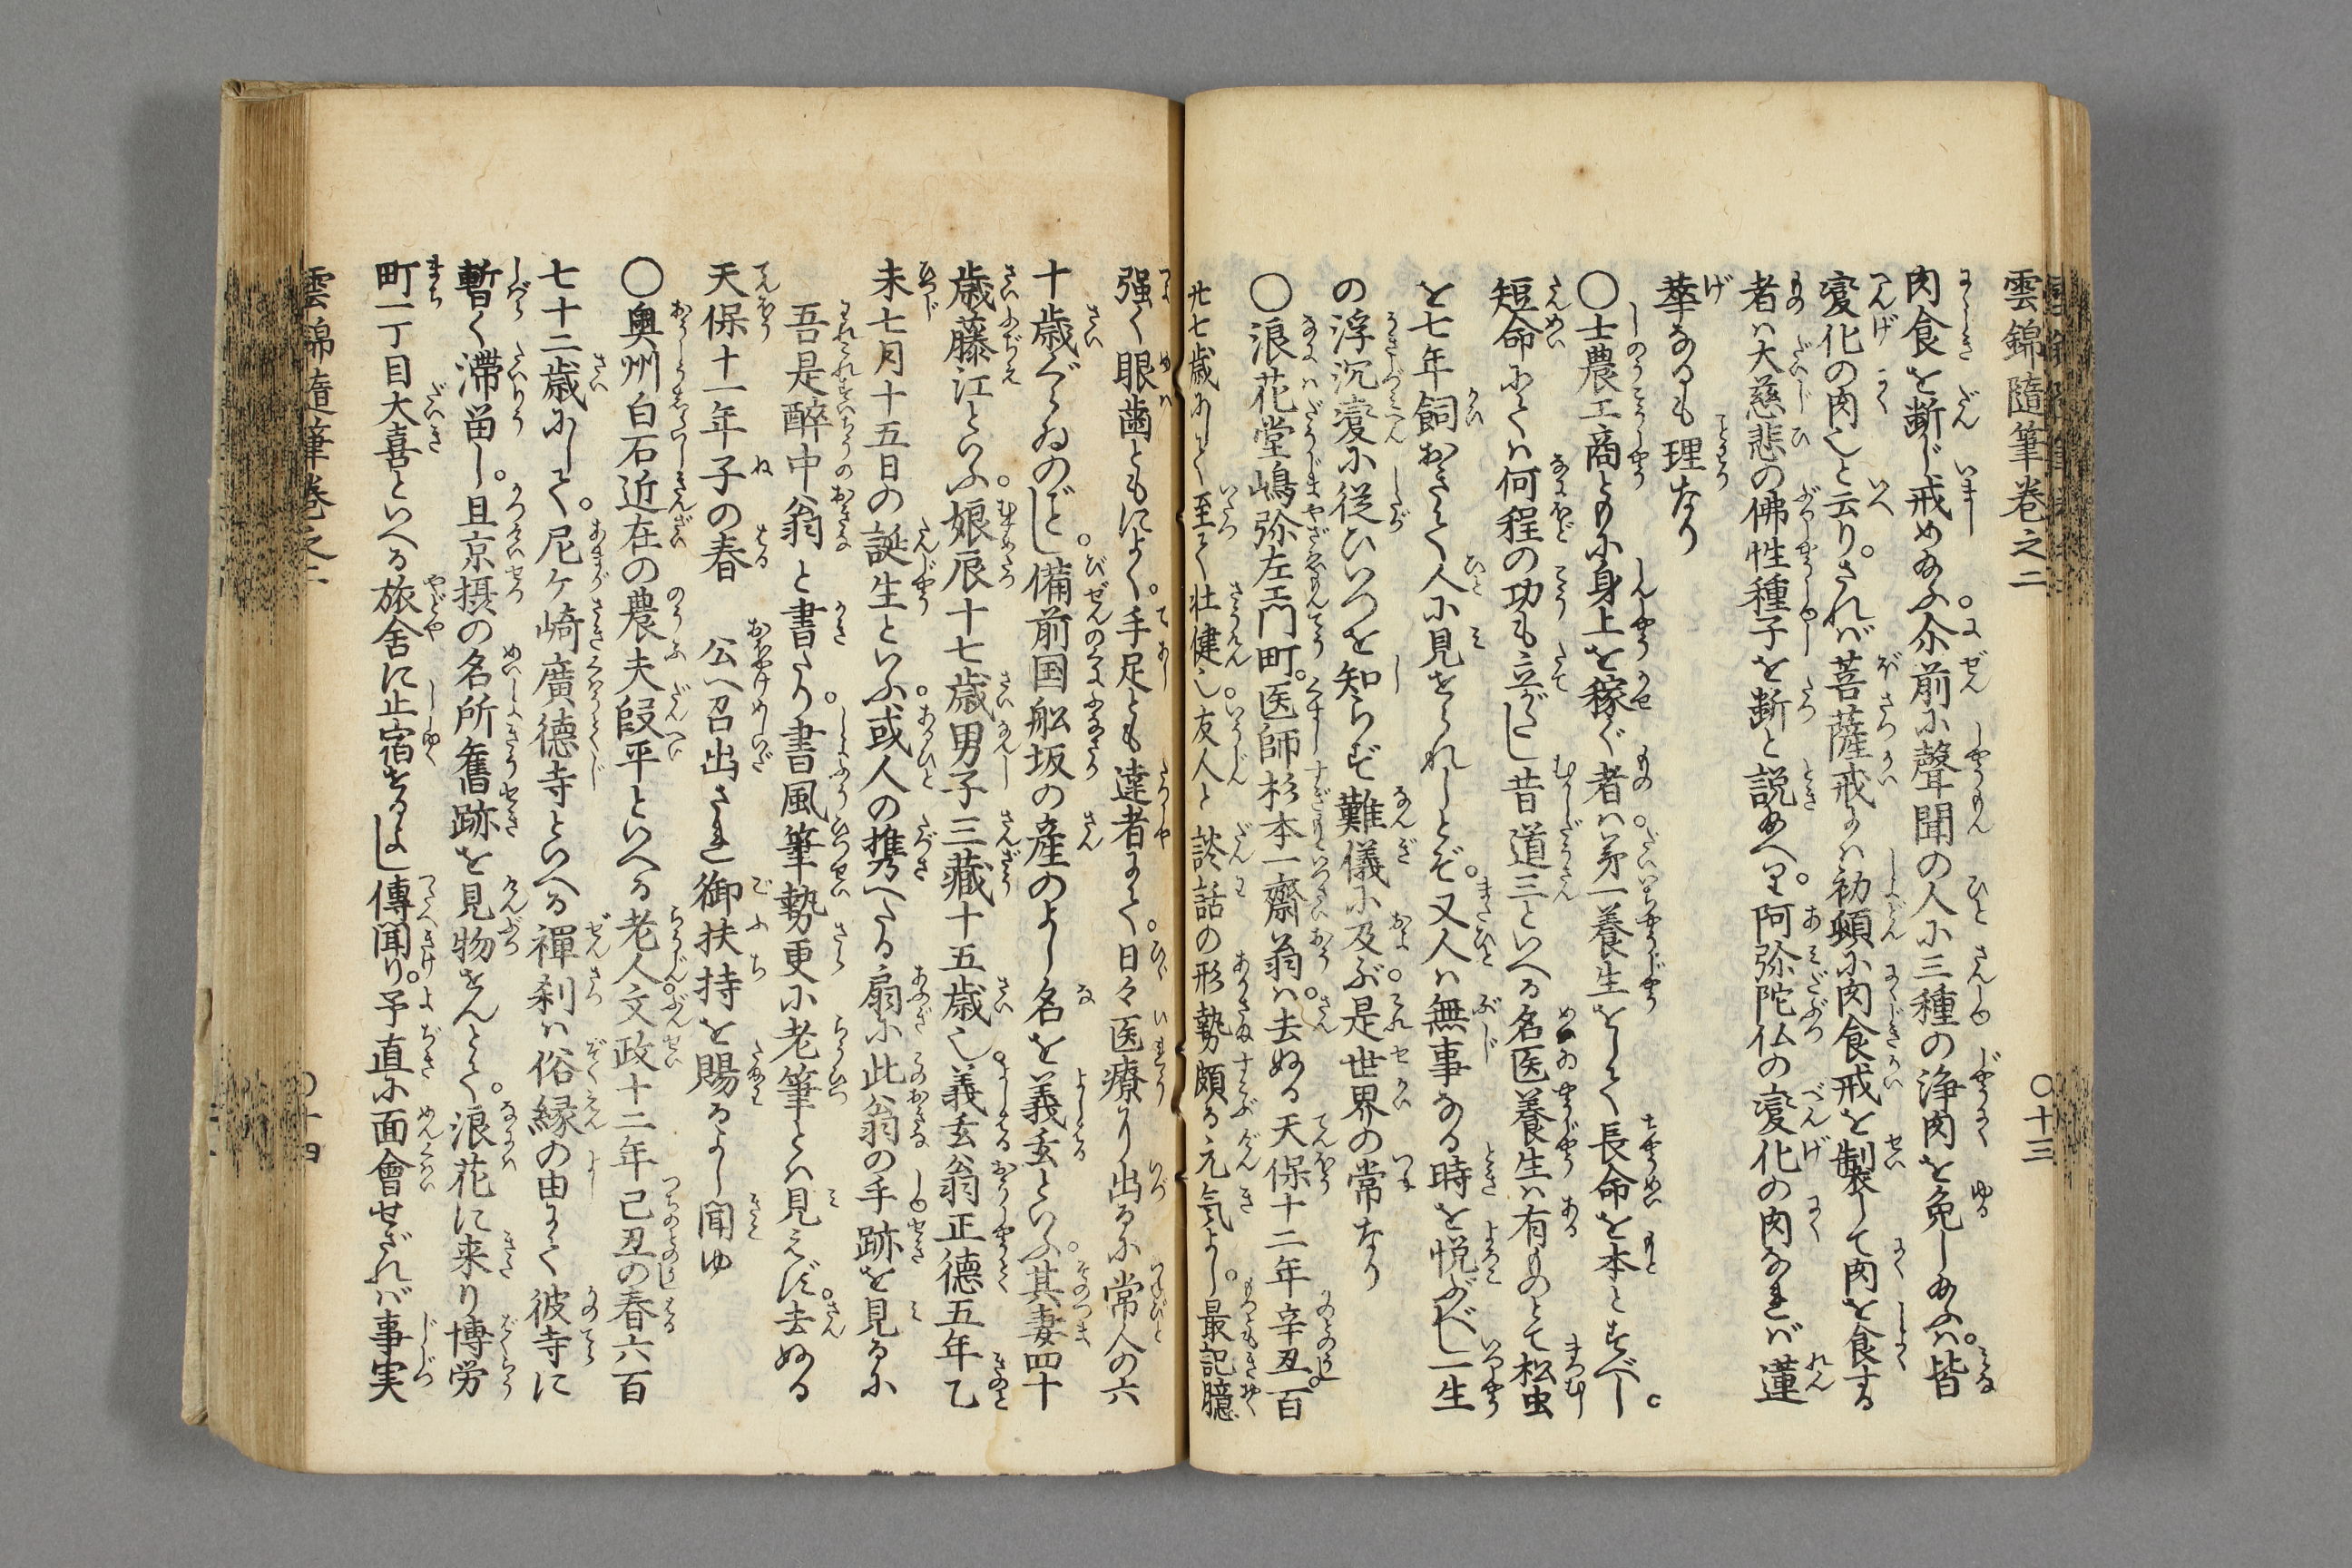 雲錦隨筆巻之二　〇十三
肉食を断じ戒め給ふ。尓前に聲聞の人に三種の浄肉を免し給ふハ。皆
変化の肉也と云り。されば菩薩戒にハ初頓に肉食戒を制して肉を食する
者ハ大慈悲の佛性種子を断と説給へり。阿弥陀仏の変化の肉なれバ蓮
華なるも理なり
〇士農工商ともに身上を稼ぐ者ハ。第一養生をして長命を本とすべし。
短命にてハ何程の功も立がたし昔道三といへる名医養生ハ有ものとて松虫
を七年飼おきて人に見せられしとぞ。又人ハ無事なる時を悦ぶべし一生
の浮沉変に従ひいつを知らず難儀に及ぶ。是世界の常なり
〇浪花堂嶋弥左エ門町。医師杉本一齋翁ハ。去ぬる天保十二年辛丑。百
廿七歳にして至て壮健也。友人と談話の形勢頗る元気よし。最記臆
强く眼歯ともによく。手足とも達者にて。日々医療より出るに常人の六
十歳ぐらゐのごとし。備前国舩坂の産のよし名を義玄といふ。其妻四十
歳藤江といふ。娘辰十七歳男子三藏十五歳也。義玄翁正德五年乙
未七月十五日の誕生といふ。或人の携へたる扇に此翁の手跡を見るに
吾是醉中翁　と書たり。書風筆勢更に老筆とハ見えず。去ぬる
天保十一年子の春　公へ召出され御扶持を賜るよし聞ゆ
〇奥州白石近在の農夫段平といへる老人。文政十二年己丑の春六百
七十二歳にして。尼ケ崎廣德寺といへる禪刹ハ俗縁の由にて彼寺に
暫く滞畄し。且京摂の名所舊跡を見物せんとて。浪花に来り博労
町一丁目大喜といへる旅舎に止宿せるよし傳聞り。予直に面會せざれバ事実
雲錦隨筆巻之二　〇十四